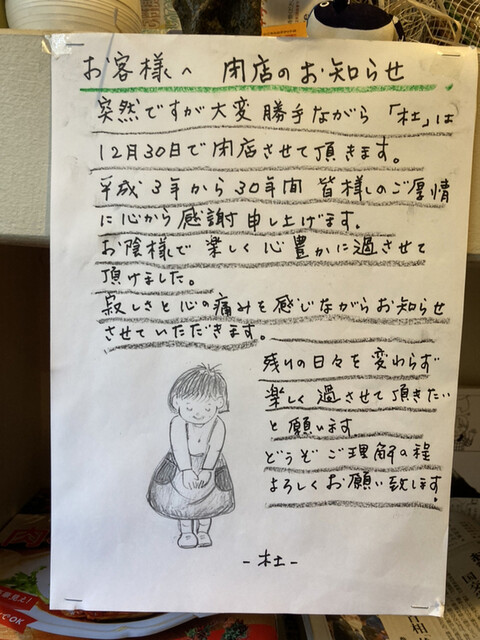 お客様へ 閉店のお知らせ
突然ですが大変勝手ながら「杜」は
12月30日で閉店させて頂きます。
平成3年から30年間 皆様しのご厚情
に心から感謝申し上げます。
お陰様で楽しく心豊かに過させて
頂けました。
寂しさと心の痛みを感じながらお知らせ
させていただきます。
残りの日々を変わらず
楽しく過させて頂きたい
と願います。
どうぞご理解の程
よろしくお願い致します。
-杜-